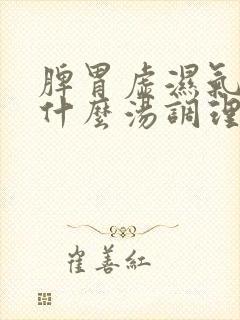 脾胃虛濕氣
什麼湯調理
崔善紅